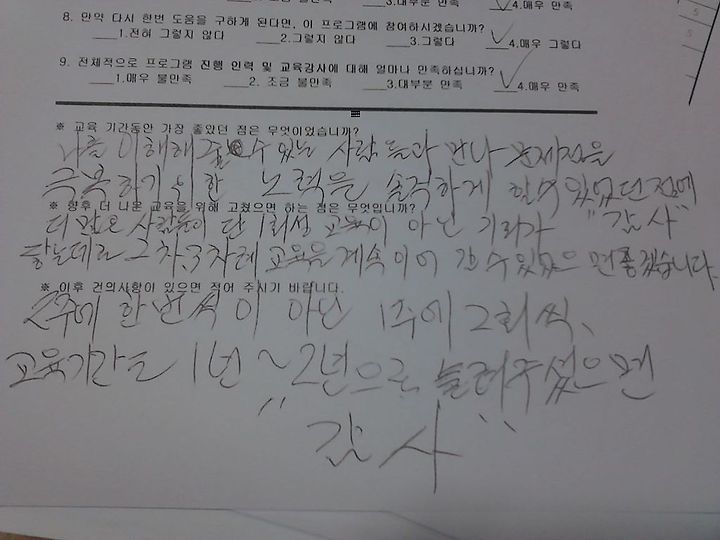 3.대부분 만족 4.매우 만족
8. 만약 다시 한번 도움을 구하게 된다면, 이 프로그램에 참여하시겠습니까?
1.전혀 그렇지 않다 2.그렇지 않다 3.그렇다 4.매우 그렇다
9. 전체적으로 프로그램 진행 인력 및 교육강사에 대해 얼마나 만족하십니까?
1.매우 불만족 2. 조금 불만족 3.대부분 만족 4.매우 만족
※ 교육 기간동안 가장 좋았던 점은 무엇이었습니까?
나를 이해해 줄 수 있는 사람들과 만나 문제점을
극복하기 위한 노력을 솔직하게 할 수 있었던 점에
※ 향후 더 나은 교육을 위해 고쳤으면 하는 점은 무엇입니까? "감사"
더 많은 사람들이 단 1회성 교육이 아닌 기회가
닿는데로 2차, 3차례 교육을 계속 이어 갈 수 있었으면 좋겠습니다.
※ 이후 건의사항이 있으면 적어 주시기 바랍니다.
2주에 한번씩이 아닌 1주에 2회씩,
교육기간도 1년 ~ 2년으로 늘려주셨으면
"감사"